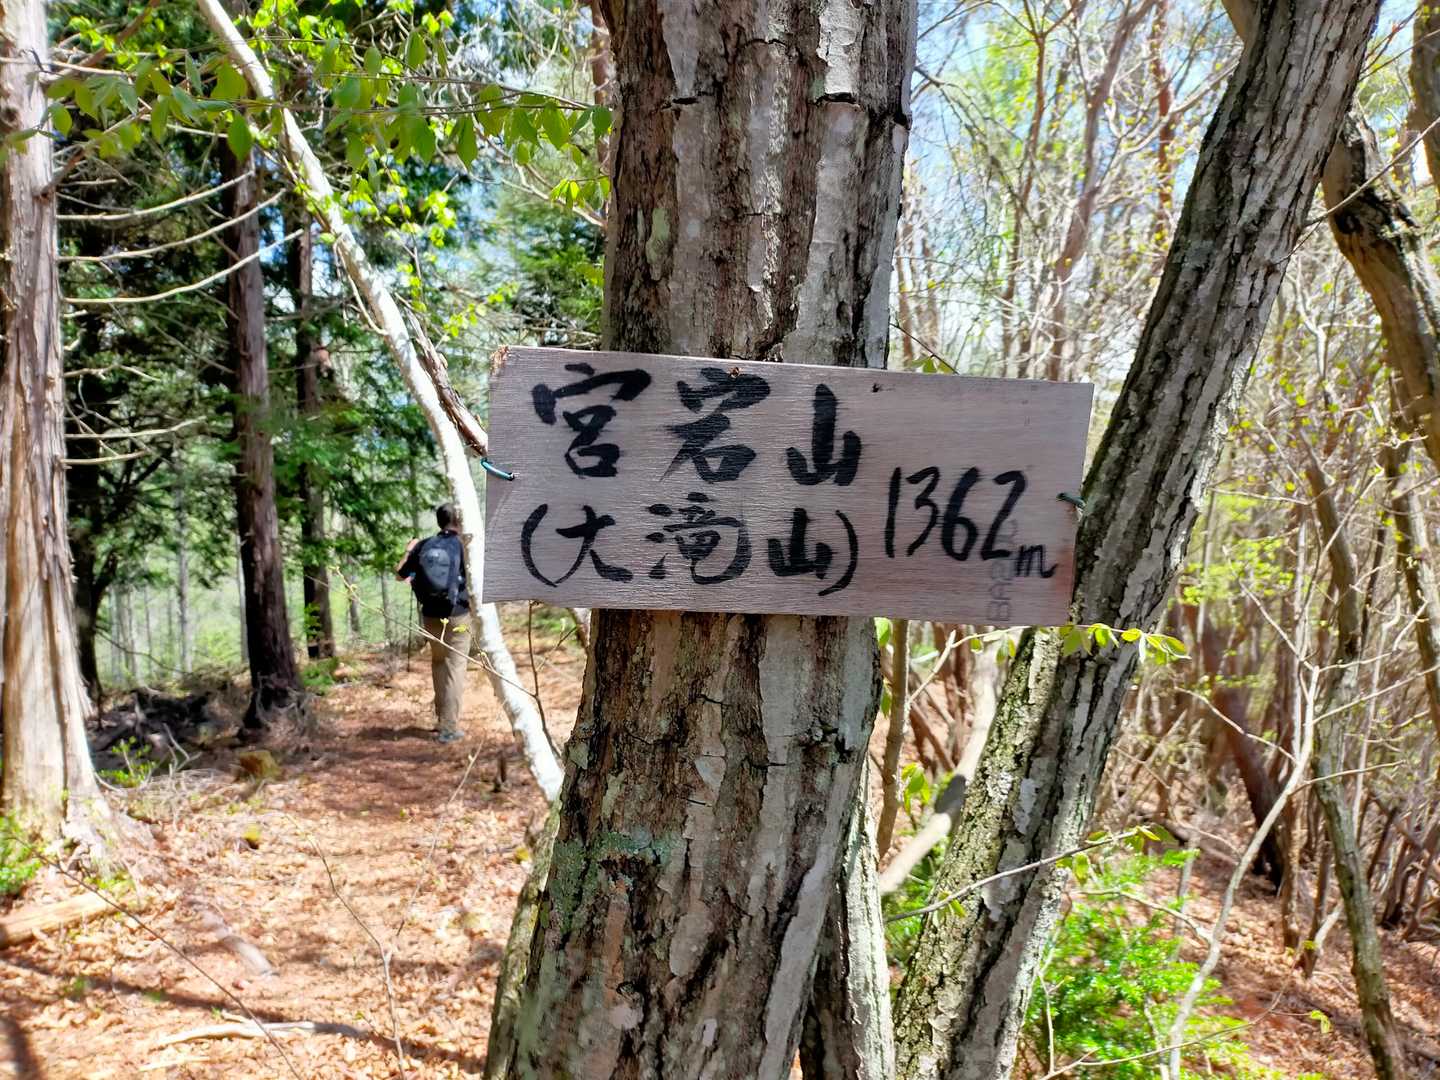 宮岩山
(大滝山) 1362m